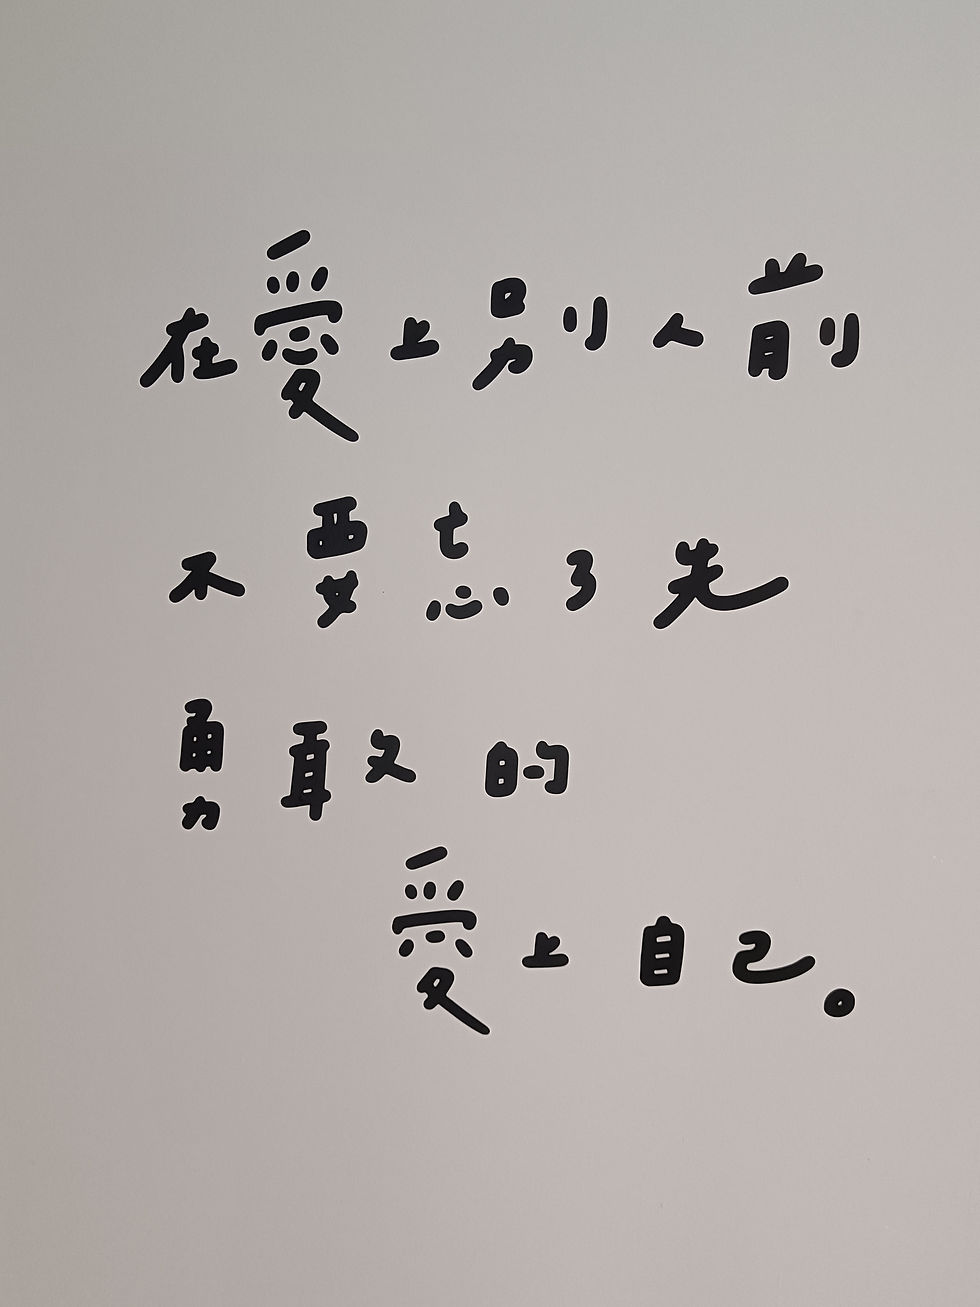 在愛上別人前
不要忘了先
勇敢的
愛上自己。